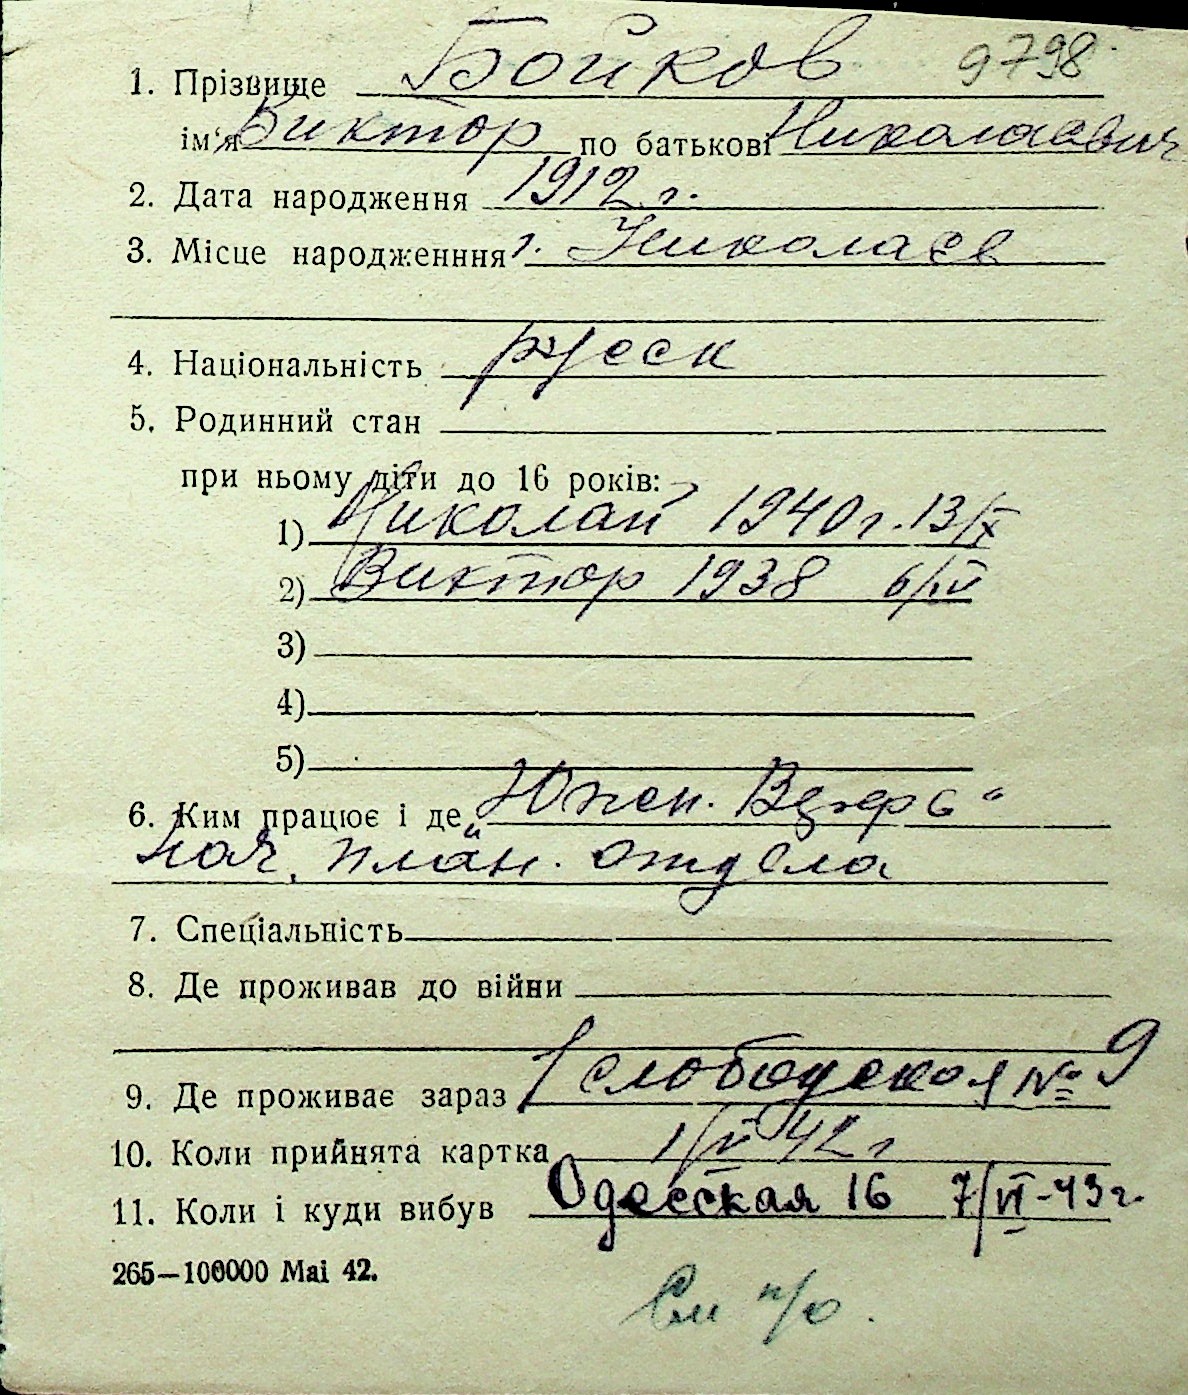 1. Прізвище Бойков 9798
ім'я Виктор по батькові Николаевич
2. Дата народження 1912 г.
3. Місце народженння г. Николаев
4. Національність русск
5. Родинний стан
при ньому діти до 16 років:
1) Николай 1940 г. 13/X
2) Виктор 1938 6/IV
3)
4)
5)
6. Ким працює і де „Южн. Верфь“
нач. план. отдела
7. Спеціальність
8. Де проживав до війни
9. Де проживає зараз Слободская № 9
10. Коли прийнята картка 1/VI 42 г
11. Коли і куди вибув Одесская 16 7/VI-43 г.
265—100000 Mai 42.
См н/о.